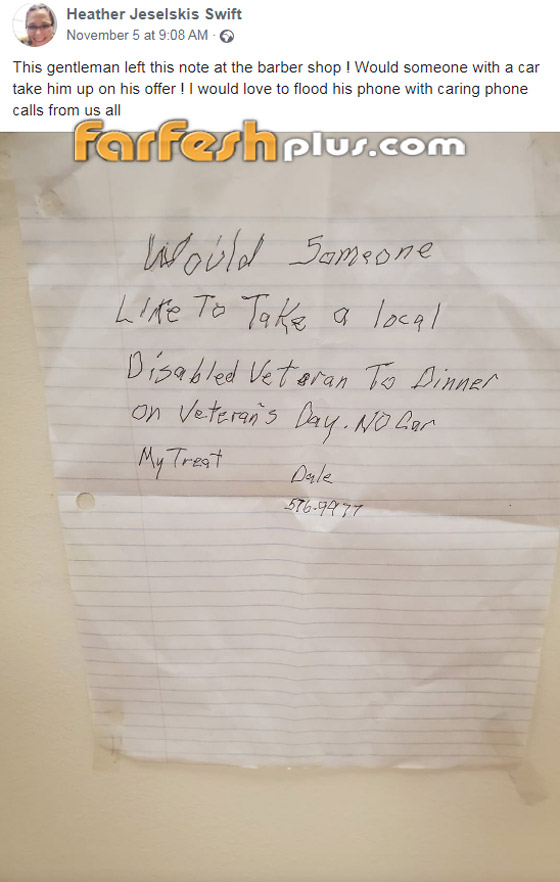 Heather Jeselskis Swift
November 5 at 9:08 AM ·
This gentleman left this note at the barber shop ! Would someone with a car
take him up on his offer ! I would love to flood his phone with caring phone
calls from us all
farfesh plus.com
Would Someone
Like To Take a local
Disabled Veteran To Dinner
on Veteran's Day. NO Car
My Treat
Dale
576-9977